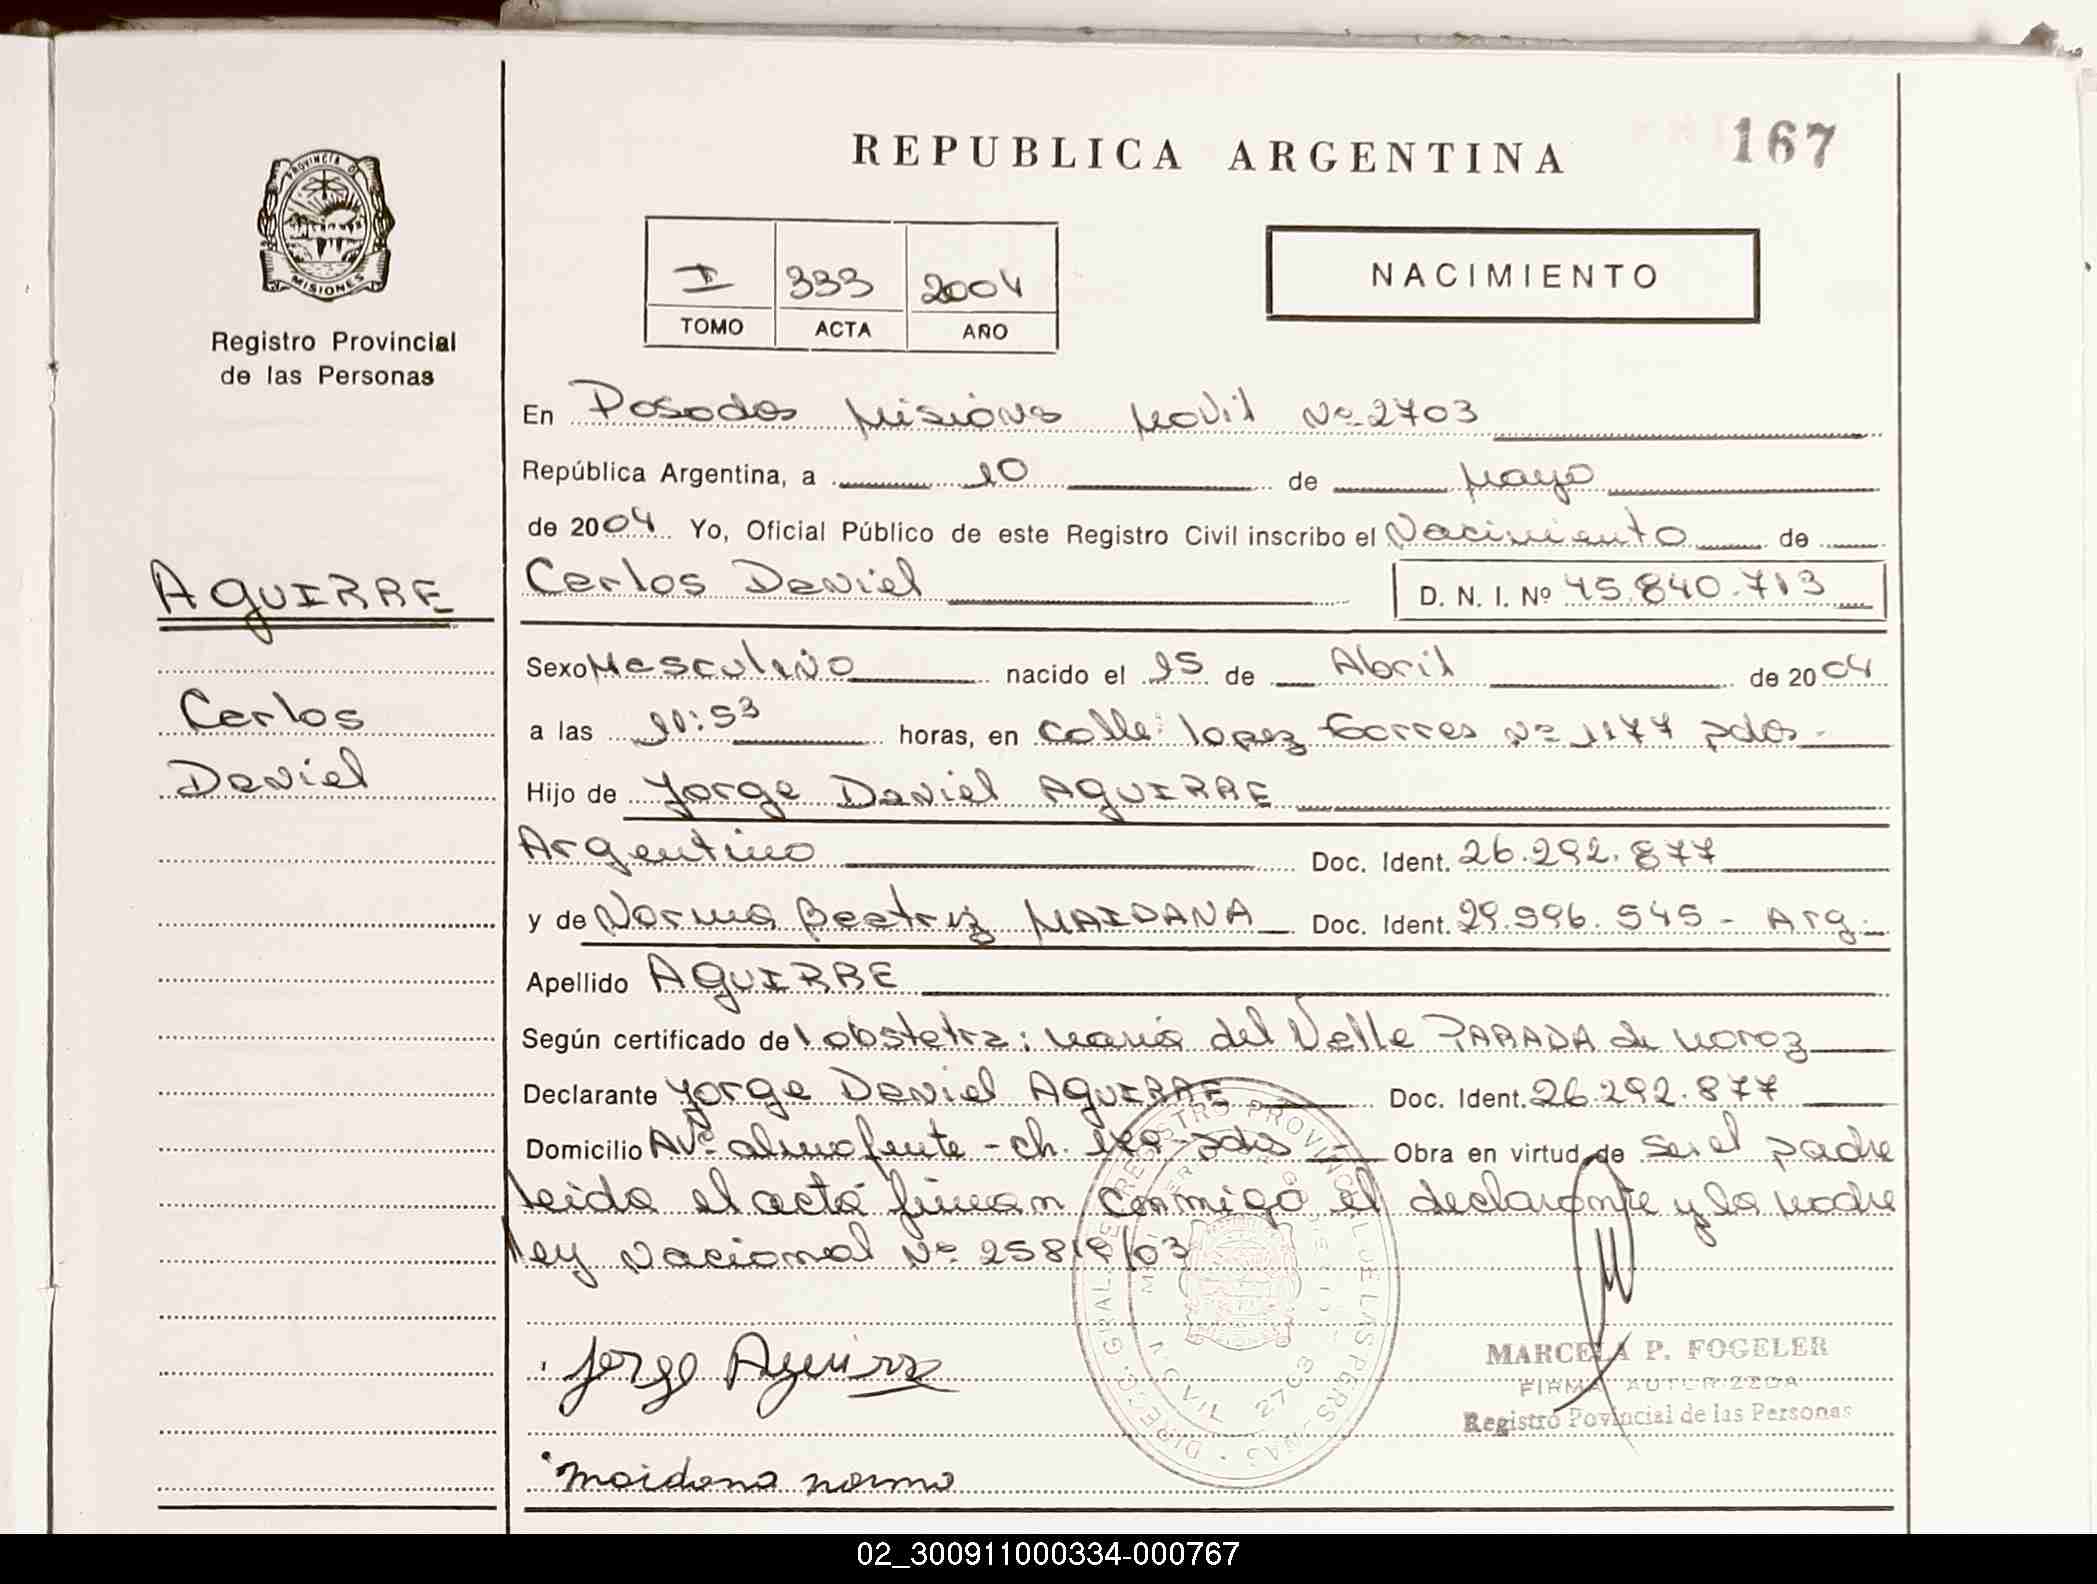 REPUBLICA ARGENTINA
167
PROVINCIA D
MISIONES
Registro Provincial
de las Personas
I 333 2004
TOMO ACTA AÑO
NACIMIENTO
En Posadas Misiones Movil Nº 2703
República Argentina, a 10 de Mayo
de 2004 Yo, Oficial Público de este Registro Civil inscribo el Nacimiento de
AGUIRRE
Carlos Daniel
D. N. I. Nº 45.840.713
Sexo Masculino nacido el 15 de Abril de 2004
Carlos
Daniel
a las 11:53 horas, en Calle: Lopez Torres Nº 1177 pdas-
Hijo de Jorge Daniel AGUIRRE
Argentino Doc. Ident. 26.292.877
y de Norma Beatriz MAIDANA Doc. Ident. 29.596.545 - Arg.
Apellido AGUIRRE
Según certificado de l obstetra: Maria del Valle PARADA de Moroz
Declarante Jorge Daniel AGUIRRE Doc. Ident. 26.292.877
Domicilio Avº almafuerte - ch. pdas - Obra en virtud de ser el padre
leida el acta firman conmigo el declarante y la madre
ley Nacional Nº 25819/03
Jorge Aguirre
Maidana norma
MARCELA P. FOGELER
FIRMA AUTORIZADA
Registro Povincial de las Personas
MOVIL 2703
02_300911000334-000767